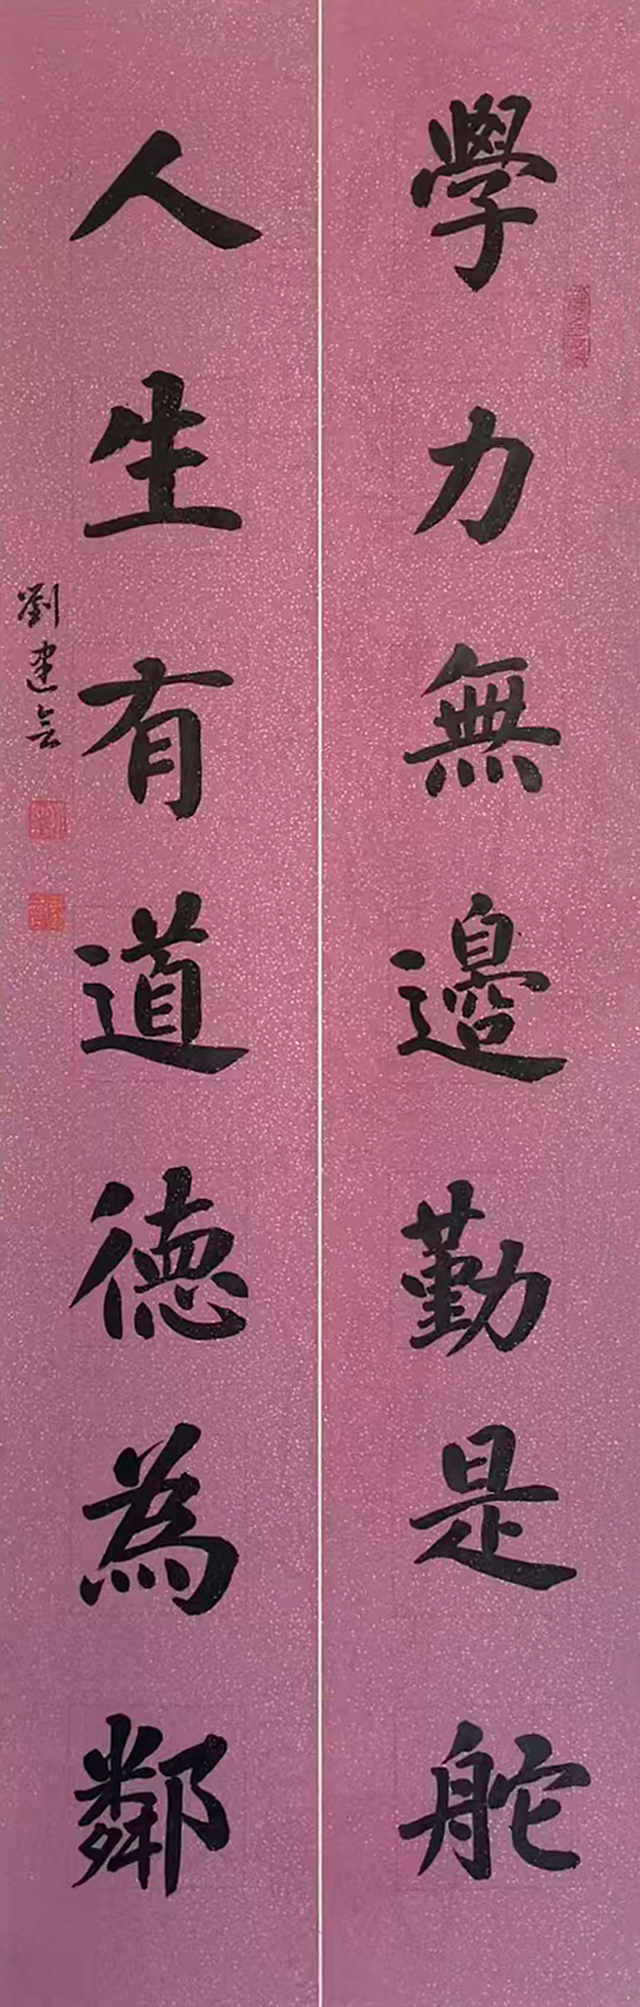 學力無邊勤是舵
人生有道德為鄰
劉建会